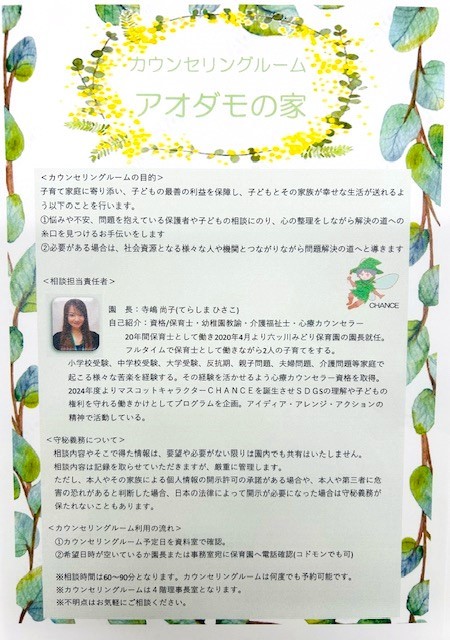 カウンセリングルーム
アオダモの家
＜カウンセリングルームの目的＞
子育て家庭に寄り添い、子どもの最善の利益を保障し、子どもとその家族が幸せな生活が送れるよ
う以下のことを行います。
①悩みや不安、問題を抱えている保護者や子どもの相談にのり、心の整理をしながら解決の道への
糸口を見つけるお手伝いをします
②必要がある場合は、社会資源となる様々な人や機関とつながりながら問題解決の道へと導きます
＜相談担当責任者＞
CHANCE
園　長：寺嶋 尚子(てらしま ひさこ)
自己紹介：資格/保育士・幼稚園教諭・介護福祉士・心療カウンセラー
20年間保育士として働き2020年4月より六ッ川みどり保育園の園長就任。
フルタイムで保育士として働きながら2人の子育てをする。
小学校受験、中学校受験、大学受験、反抗期、親子問題、夫婦問題、介護問題等家庭で
起こる様々な苦楽を経験する。その経験を活かせるよう心療カウンセラー資格を取得。
2024年度よりマスコットキャラクターＣＨＡＮＣＥを誕生させＳＤＧｓの理解や子どもの
権利を守れる働きかけとしてプログラムを企画。アイディア・アレンジ・アクションの
精神で活動している。
＜守秘義務について＞
相談内容やそこで得た情報は、要望や必要がない限りは園内でも共有はいたしません。
相談内容は記録を取らせていただきますが、厳重に管理します。
ただし、本人やその家族による個人情報の開示許可の承諾がある場合や、本人や第三者に危
害の恐れがあると判断した場合、日本の法律によって開示が必要になった場合は守秘義務が
保たれないこともあります。
＜カウンセリングルーム利用の流れ＞
①カウンセリングルーム予定日を資料室で確認。
②希望日時が空いているか園長または事務室宛に保育園へ電話確認(コドモンでも可)
※相談時間は60～90分となります。カウンセリングルームは何度でも予約可能です。
※カウンセリングルームは４階理事長室となります。
※不明点はお気軽にご相談ください。